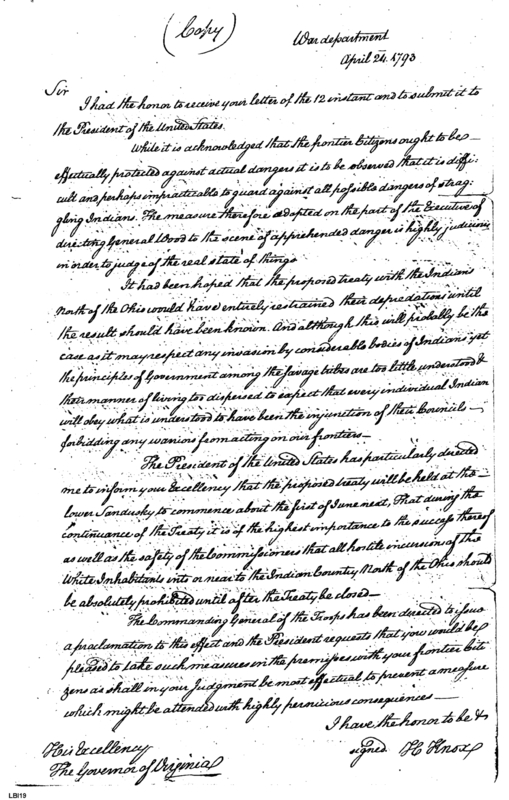 (Copy)
War department
April 24. 1793
Sir
I had the honor to receive your letter of the 12 instant and to submit it to
the President of the United States.
While it is acknowledged that the frontier Citizens ought to be
effectually protected against actual dangers it is to be observed that it is diffi:
cult and perhaps impracticable to guard against all possible dangers of strag:
gling Indians. The measure therefore adopted on the part of the Executive of
directing General Wood to the scene of apprehended danger is highly judicious
in order to judge of the real state of things
It had been hoped that the proposed treaty with the Indians
North of the Ohio would have entirely restrained their depredations until
the result should have been known. And although this will probably be the
case as it may respect any invasion by considerable bodies of Indians yet
the principles of Government among the savage tribes are too little understood &
their manner of living too dispersed to expect that every individual Indian
will obey what is understood to have been the injunction of their Councils —
forbidding any warriors from acting on our frontiers —
The President of the United States has particularly directed
me to inform your Excellency that the proposed treaty will be held at the —
lower Sandusky to commence about the first of June next, That during the
continuance of the Treaty it is of the highest importance to the success thereof
as well as the safety of the Commissioners that all hostile incursions of the
White Inhabitants into or near to the Indian Country North of the Ohio should
be absolutely prohibited until after the Treaty be closed —
The Commanding General of the Troops has been directed to issue
a proclamation to this effect and the President requests that you would be
pleased to take such measures in the premisses with your frontier Citi
zens as shall in your Judgment be most effectual to prevent a measure
which might be attended with highly pernicious consequences —
I have the honor to be &
signed H Knox
His Excellency
The Governor of Virginia
LBI19